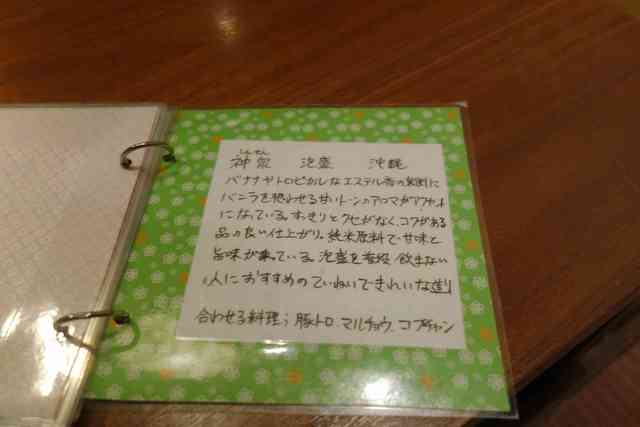 しんせん
神泉 泡盛 沖縄
バナナやトロピカルなエステル香の裏側に
バニラを想わせる甘いトーンのアロマがアクセント
になっている。すっきりとクセがなく、コクがある
品の良い仕上がり。純米原料で甘味と
旨味が乗っている。泡盛を普段飲まない
人におすすめのていねいできれいな造り
合わせる料理; 豚トロ、マルチョウ、コプチャン